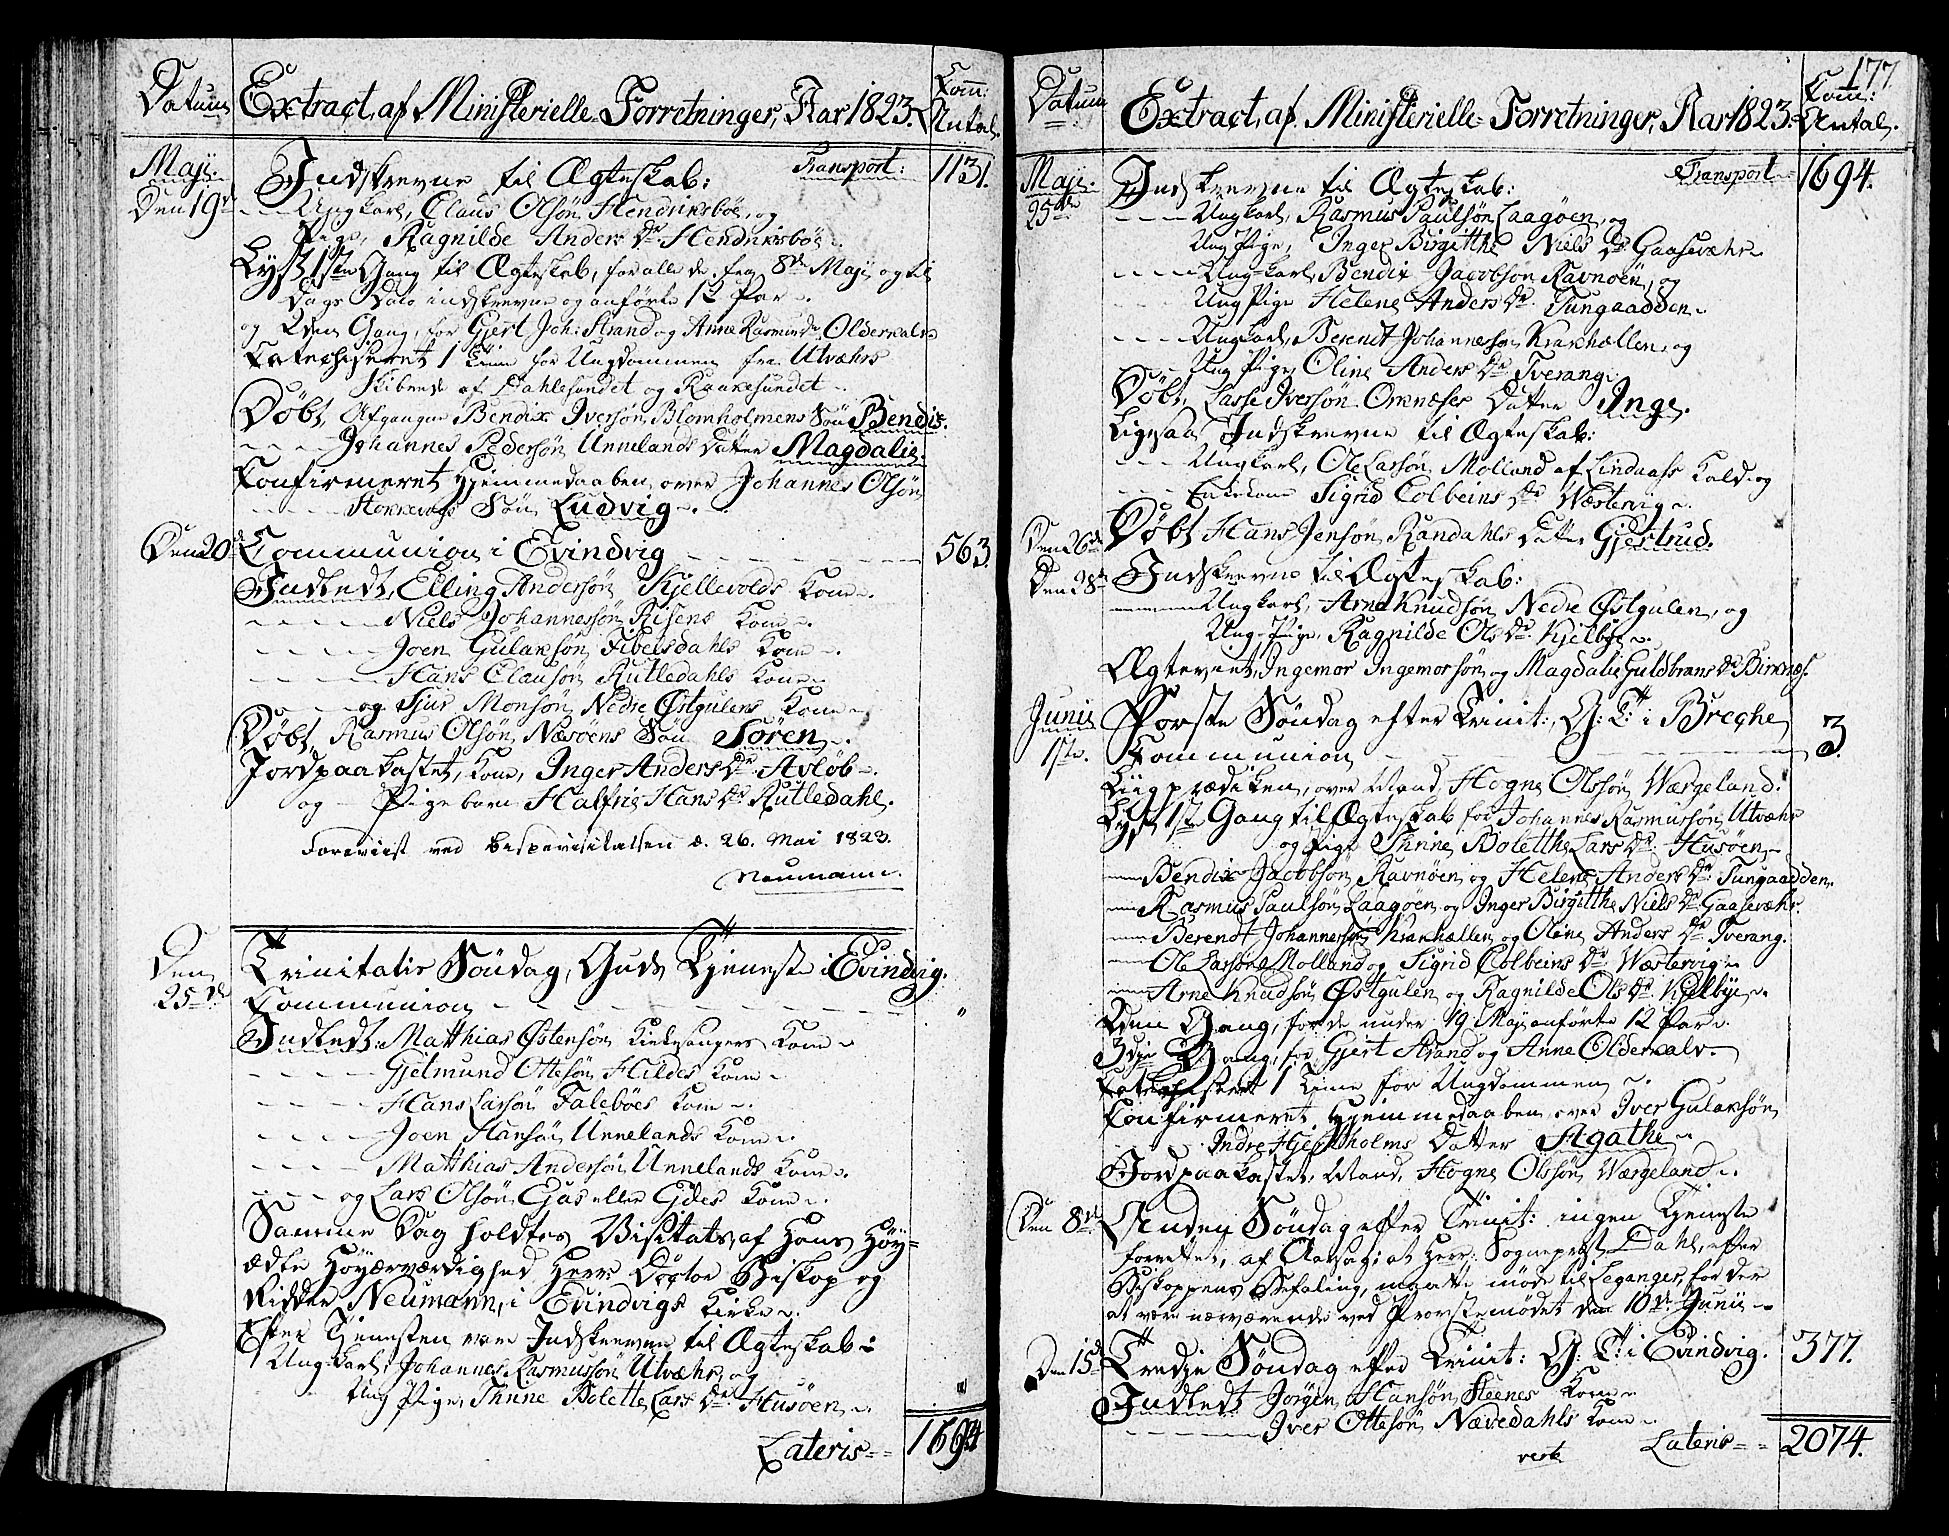 Datum Extract, af Ministerielle Forretninger, Aar 1823. Com: Antal.
Maji. Indskrevne til Ægteskab: Transport: 1131.
Den 19de - - Ungkarl, Claus Olsön Hendriksböe, og
Pige, Ragnilde Anders Dr Hendriksböe
Lyst 1ste Gang til Ægteskab, for alle de fra 8de Maji og til
Dags Dato indskrevne og anförte 12 Par.
og 2den Gang, for Gjert Joh: Strand og Anne Rasmus Dr Oldervalv
Catechiseret 1 Time for Ungdommen fra Utvæhrs
Skibrede af Dahlesundet og Raakesundet
Döbt, Afgangne Bendix Iversön Blomholmens Sön Bendix.
- - - Johannes Pedersön Unnelands Datter Magdalie.
Confirmeret Hjemmedaaben, over Johannes Olsön
Sön Ludvig
Den 20de Communion i Evindvig 563
Indledt, Elling Andersön Kjellevolds Kone.
- - - Niels Johannessön Risens Kone.
- - - Joen Gulaksön Fivelsdahls Kone
- - - Hans Clausön Rutledahls Kone
- - - og Sjur Monsön Nedre Östgulens Kone
Döbt Rasmus Olsön Næsöens Sön Sören
Jordpaakastet, Kone, Inger Anders Dr Avlöb
og - Pigebarn Halfrie Hans Dr Rutledahl.
Foreviist ved Bispevisitatsen d. 26. Mai 1823.
Neumann.
Den 25de Trinitatis Söndag, Guds Tjeneste i Evindvig.
Communion - - - "
Indledt Matthias Östensön Kirkesangers Kone
- - - Gjelmund Ottesön Hildes Kone
- - - Hans Larsön Taleböes Kone
- - - Joen Hansön Unnelands Kone
- - - Matthias Andersön Unnelands Kone
- - - og Lars Olsön Ejas eller Eides Kone
Samme Dag holdtes Visitats af Hans Höy=
ædle Höyærværdighed Herr Doctor Biskop og
Ridder Neumann, i Evindvigs Kirke
Efter Tjenesten vare Indskrevne til Ægteskab:
Ung karl, Johannes Rasmussön Utvæhr og
Ung Pige, Thrine Bolette Lars Dr Husöen
Lateris 1694
177.
Datum Extract, af Ministerielle Forretninger, Aar 1823. Com: Antal.
Maji. 25de Indskrevne til Ægteskab: Transport 1694.
- - - Ungkarl, Rasmus Paulsön Laagöen, og
Ung Pige, Inger Birgitthe Niels Dr Gaasevæhr
- - - Ung karl, Bendix Jacobsön Ravnöen, og
- - - Ung Pige Helene Anders Dr Tungaadden
- - - Ungkarl, Berendt Johannessön Krakhællen, og
- - - Ung Pige Oline Anders Dr Tverang
Döbt Lasse Iversön Ornæses Datter Inge.
Ligesaa Indskrevne til Ægteskab:
- - - Ungkarl, Ole Larsön Molland af Lindaas Kald og
- - - Enkekone Sigrid Colbeins Dr Wæstervig
Den 26de Döbt Hans Jensön Randahls Datter Gjertrud.
Den 28de Indskrevne til Ægteskab:
Ungkarl, Arne Knudsön Nedre Östgulen, og
Ung Pige, Ragnilde Ols Dr Kjelbye
Ægteviet, Ingemor Ingemorsön og Magdalie Guldbrans Dr Birknæs.
Junii 1ste. Förste Söndag efter Trinit:, G: T: i Breche
Communion - - - 3.
Liigprædiken, over Mand, Hogne Olsön Wærgeland.
Lyst 1ste Gang til Ægteskab for Johannes Rasmussön Utvæhr
og Pige Thrine Bolette Lars Dr Husöen
Bendix Jacobsön Ravnöen og Helene Anders Dr Tungaadden.
Rasmus Paulsön Laagöen og Inger Birgitthe Niels Dr Gaasevæhr.
Berendt Johannessön Krakhællen og Oline Anders Dr Tverang.
Ole Larsön Molland og Sigrid Colbeins Dr Wæstervig
Arne Knudsön Östgulen og Ragnilde Ols Dr Kjelbye
2den Gang, for de under 19 Maji anförte 12 Par.
3die Gang, for Gjert Strand og Anne Oldervalv.
Catechiseret 1 Time for Ungdommen
Confirmeret Hjemmedaaben over Iver Gulaksön
Indre Hjeltholms Datter Agathe
Jordpaakastet, Mand, Hogne Olssön Wærgeland.
Den 8de Anden Söndag efter Trinit: ingen Tjeneste
forrettet, af Aarsag: at Herr Sogneprest Dahl, efter
Biskoppens Befaling, maatte möde til Leganger, for der
at være nærværende ved Provstemödet den 10de Junii
Den 15de Tredje Söndag efter Trinit: G: T: i Evindvig. 377.
Indledt Jörgen Hansön Steenes Kone
Iver Ottesön Nævedahls Kone
verte Lateris 2074.